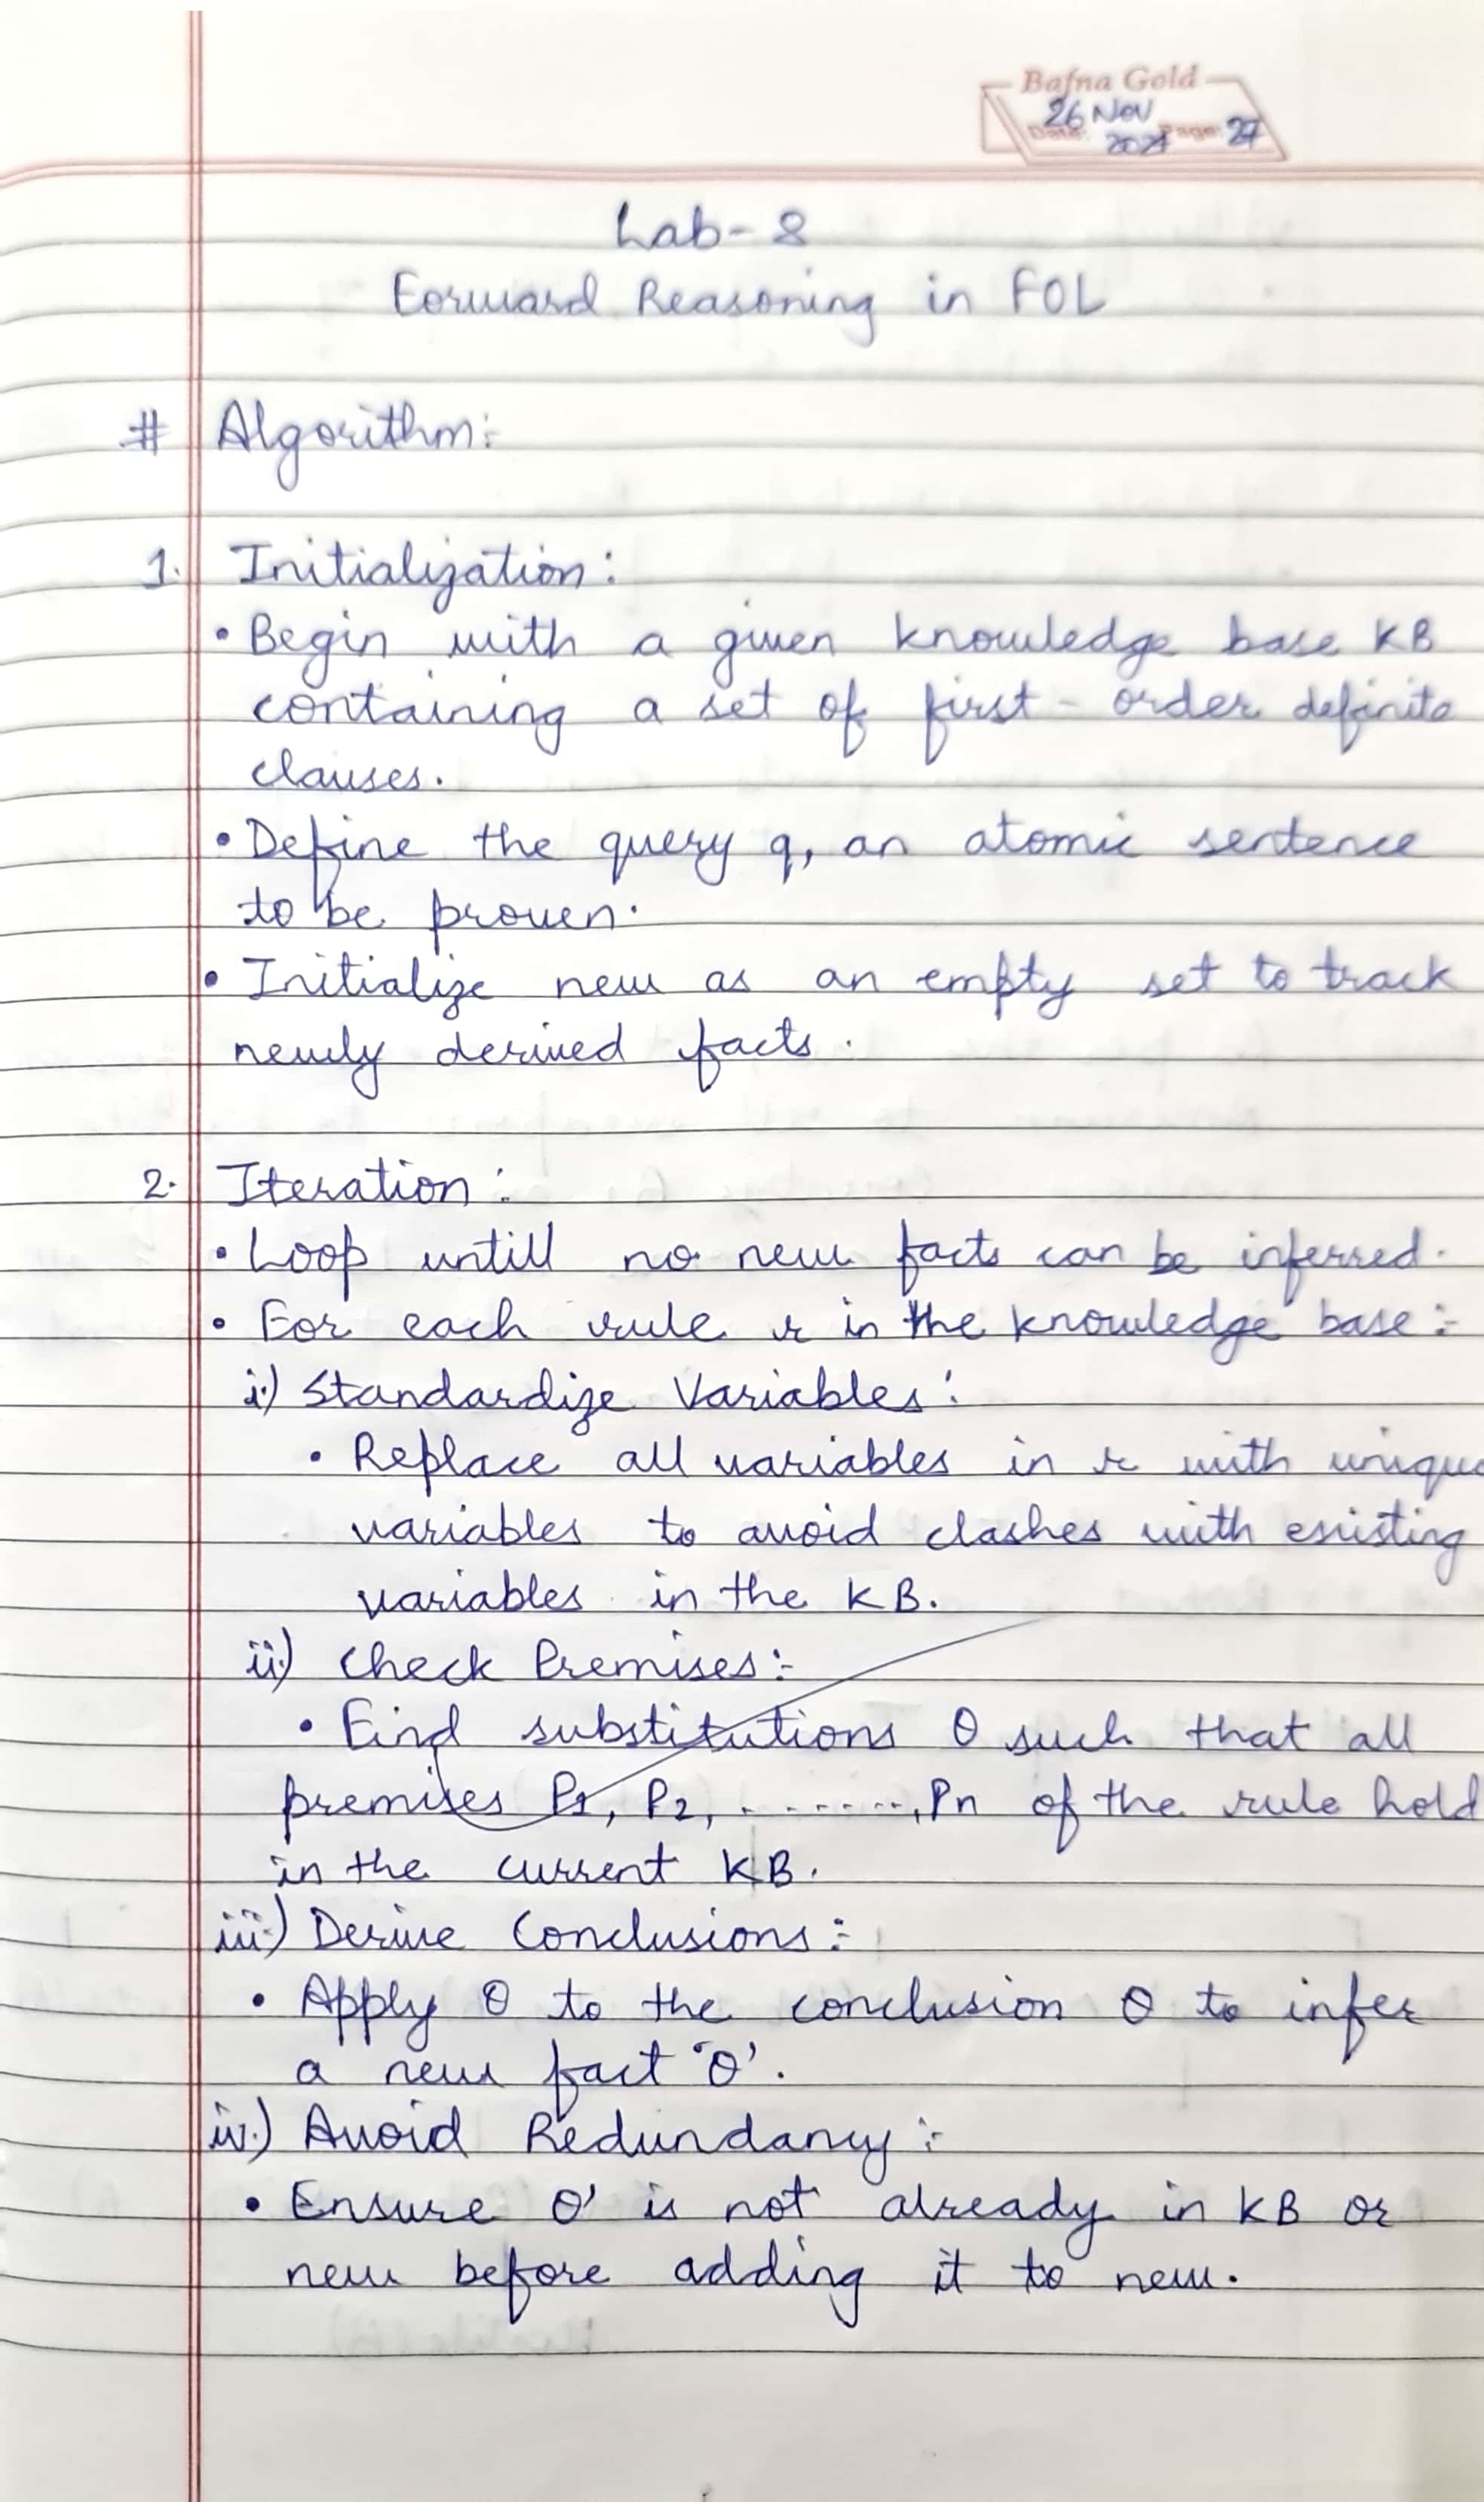 Bafna Gold
26 Nov
Date: Page: 27
Lab-8
Forward Reasoning in FOL
# Algorithm:-
1. Initialization:
• Begin with a given knowledge base KB
containing a set of first-order definite
clauses.
• Define the query q, an atomic sentence
to be proven.
• Initialize new as an empty set to track
newly derived facts.
2. Iteration:
• Loop untill no new facts can be inferred.
• For each rule r in the knowledge base:-
i) Standardize Variables:
• Replace all variables in r with unique
variables to avoid clashes with existing
variables in the KB.
ii) Check Premises:-
• Find substitutions θ such that all
premises P1, P2, ........, Pn of the rule hold
in the current KB.
iii) Derive Conclusions:-
• Apply θ to the conclusion θ to infer
a new fact 'θ'.
iv.) Avoid Redundancy:-
• Ensure θ' is not already in KB or
new before adding it to new.